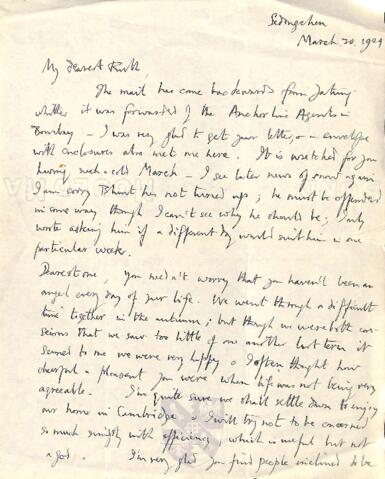 Sedongchen
March 30, 1924
My dearest Ruth,
The mail has come backwards from Jatung
whither it was forwarded by the Anchor Line Agents in
Bombay – I was very glad to get your letter, – envelope
with enclosures also met me here. It is wretched for you
having such a cold March – I see later news of snow again
I am sorry Blunt has not turned up; he must be offended
in some way though I can't see why he should be; only
worth asking him if a different day would suit him in one
particular week.
Dearest one, you needn't worry that you haven't been an
angel every day of your life. We went through a difficult
time together in the autumn; but though we were both con-
scious that we saw too little of one another last term it
seemed to me we were very happy & I often thought how
cheerful & pleasant you were when life was not being very
agreeable. I'm quite sure we shall settle down to enjoy
our home in Cambridge. I will try not to be concerned
so much simply with efficiency which is useful but not
a god. I'm very glad you find people inclined to be